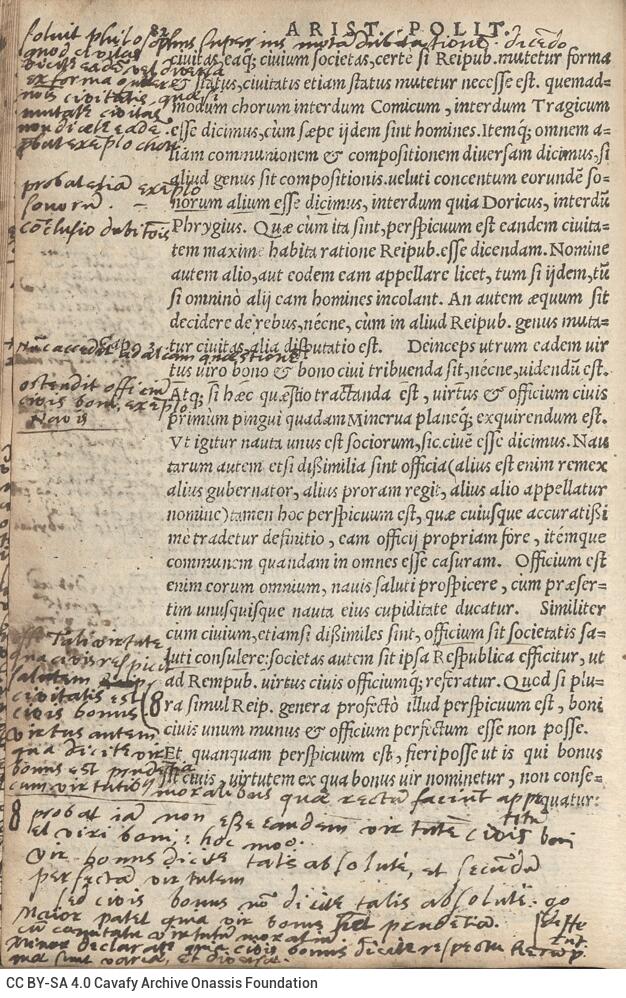 ARIST. POLIT.
soluit philosophus superius mota dubitatione. dicēdo
quod civitas
ex forma
civitatis quasi
mutate civitas
non dicat eadē.
pbat exēplo chori
probat etiā exēplo
sonorū.
cōclusio dubitōis
ciuitas, eaq́; ciuium societas, certè si Reipub. mutetur forma
& status, ciuitatis etiam status mutetur necesse est. quemad=
modum chorum interdum Comicum, interdum Tragicum
esse dicimus, cùm sæpe ijdem sint homines. Itemq́; omnem a=
liam communionem & compositionem diuersam dicimus, si
aliud genus sit compositionis. veluti concentum eorundē so=
norum alium esse dicimus, interdum quia Doricus, interdū
Phrygius. Quæ cùm ita sint, perspicuum est eandem ciuita=
tem maximè habita ratione Reipub. esse dicendam. Nomine
autem alio, aut eodem eam appellare licet, tum si ijdem, tū
si omninò alij eam homines incolant. An autem æquum sit
decidere de rebus, nécne, cùm in aliud Reipub. genus muta=
tur ciuitas, alia disputatio est. Deinceps utrum eadem vir
tus viro bono & bono ciui tribuenda sit, nécne, uidendū est.
Atq; si hæc quæstio tractanda est, virtus & officium ciuis
primùm pingui quadam Minerua planeq́; exquirendum est.
Vt igitur nauta unus est sociorum, sic ciuē esse dicimus. Nau
tarum autem etsi dißimilia sint officia (alius est enim remex
alius gubernator, alius proram regit, alius alio appellatur
nomine) tamen hoc perspicuum est, quæ cuiusque accuratißi
mè tradetur definitio, eam officij propriam fore, itémque
communem quandam in omnes esse casuram. Officium est
enim eorum omnium, nauis saluti prospicere, cùm præser=
tim unusquisque nauta eius cupiditate ducatur. Similiter
cùm ciuium, etiamsi dißimiles sint, officium sit societatis sa=
luti consulere: societas autem sit ipsa Respublica efficitur, ut
ad Rempub. virtus ciuis officiumq́; referatur. Quod si plu=
ra simul Reip. genera profectò illud perspicuum est, boni
ciuis unum munus & officium perfectum esse non posse.
Et quanquam perspicuum est, fieri posse ut is qui bonus
sit ciuis, virtutem ex qua bonus vir nominetur, non conse=
quatur:
ad aliam quæstionē
ostendit officiū
civis boni, exēplo
Navis
Tali virtute
qua civis respicit
salutem
civitatis est
civis bonus
virtus autem
qua dicitur vir
bonus est prudētia
cum virtutibus moralibus quæ rectū faciunt appe
titū
8 probat iā non esse eandem virtutē civis boni
et viri boni: hoc mōº.
Vir bonus dicitur talis absolutè, et secūdū
perfectam virtutem
sed civis bonus nō dicitur talis absolutè. go
Maior patet quia vir bonus
Minor declaratur quia civis bonus dicitur respectu Rerūp.
quæ sunt variæ, et diversæ.